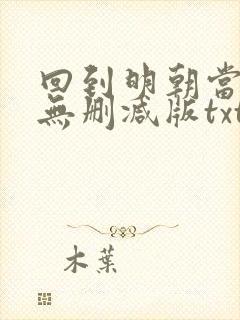 回到明朝當
無刪減版txt
木葉